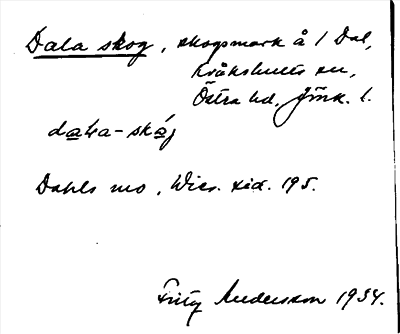 Dala skog, skogsmark å 1 Dal,
Kråkshults sn,
Östra hd, Jönk. l.
dala-skåj
Dahls mo, Wies. sid. 195.
Fritz Andersson 1934.